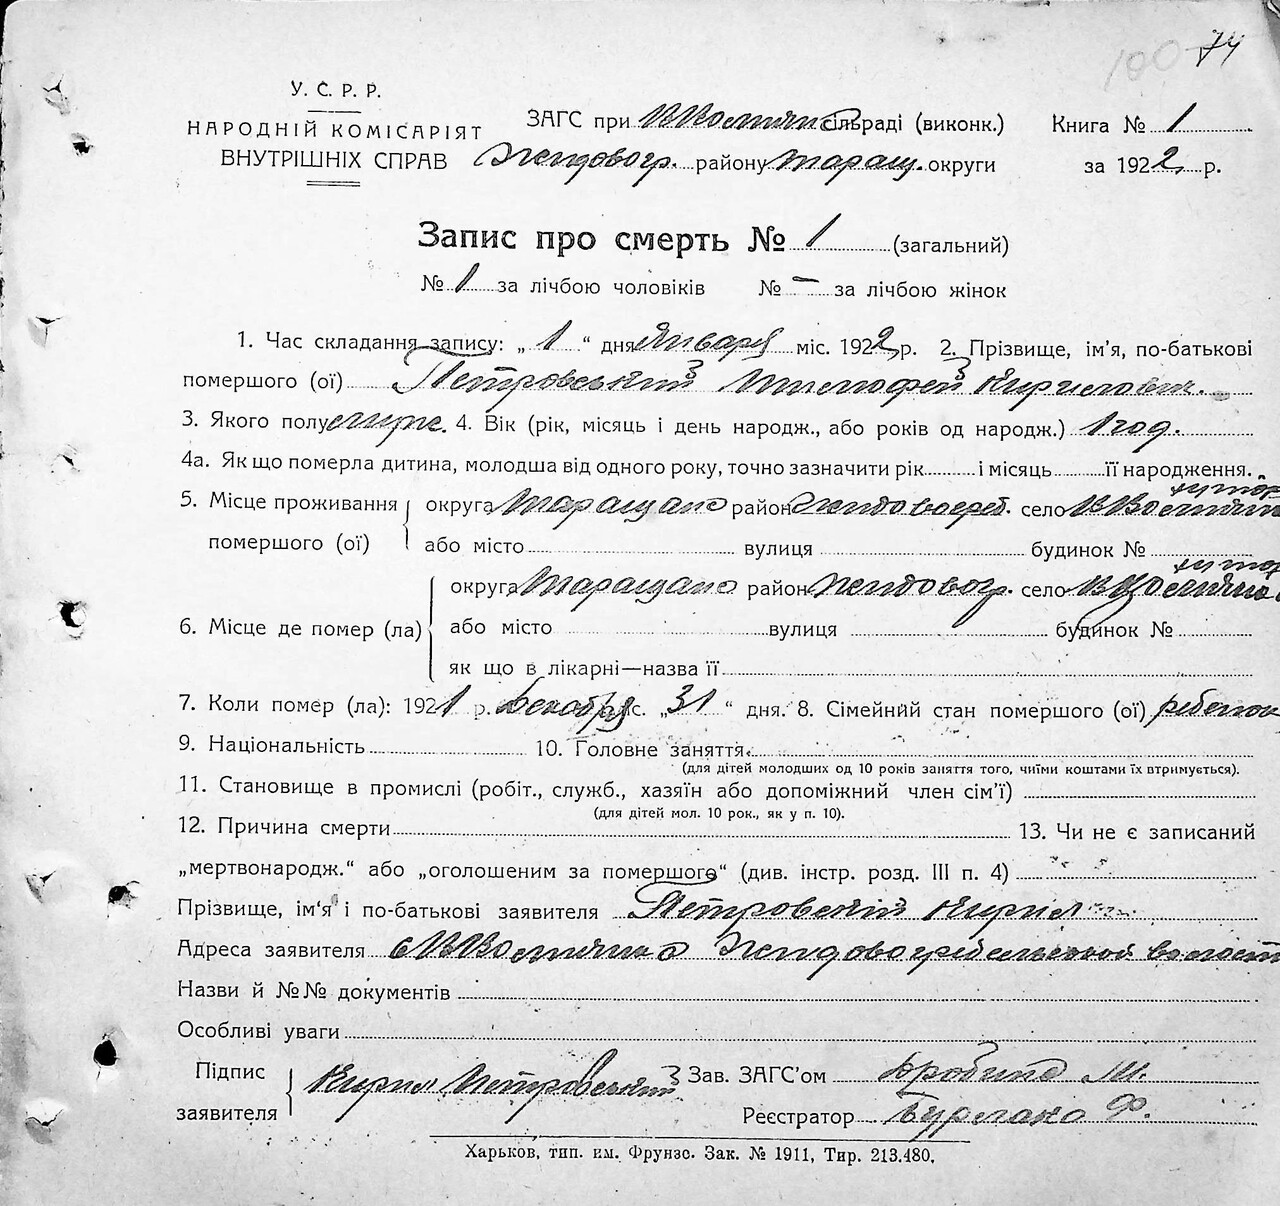 100 74
У. С. Р. Р.
НАРОДНІЙ КОМІСАРІЯТ
ВНУТРІШНІХ СПРАВ
ЗАГС при сільраді (виконк.) Книга № 1
району Таращ. округи за 1922 р.
Запис про смерть № 1 (загальний)
№ 1 за лічбою чоловіків № – за лічбою жінок
1. Час складання запису: „ 1 “ дня Января міс. 1922 р. 2. Прізвище, ім'я, по-батькові
помершого (ої) Петровський Тимофей Кирилович.
3. Якого полу муж. 4. Вік (рік, місяць і день народж., або років од народж.) 1 год.
4а. Як що померла дитина, молодша від одного року, точно зазначити рік і місяць її народження.
5. Місце проживання округа Таращано район село хутор
помершого (ої) або місто вулиця будинок №
округа Таращано район село хутор
6. Місце де помер (ла) або місто вулиця будинок №
як що в лікарні—назва її
7. Коли помер (ла): 1921 р. Декабря міс. „ 31 “ дня. 8. Сімейний стан помершого (ої) ребенок
9. Національність 10. Головне заняття
(для дітей молодших од 10 років заняття того, чиїми коштами їх втримується).
11. Становище в промислі (робіт., служб., хазяїн або допоміжний член сім'ї)
(для дітей мол. 10 рок., як у п. 10).
12. Причина смерти 13. Чи не є записаний
„мертвонародж.“ або „оголошеним за помершого“ (див. інстр. розд. III п. 4)
Прізвище, ім'я і по-батькові заявителя Петровский Кирил
Адреса заявителя
Назви й №№ документів
Особливі уваги
Підпис
заявителя Кирил Петровський Зав. ЗАГС'ом
Реєстратор Бурлака Ф.
Харьков, тип. им. Фрунзе. Зак. № 1911, Тир. 213.480.